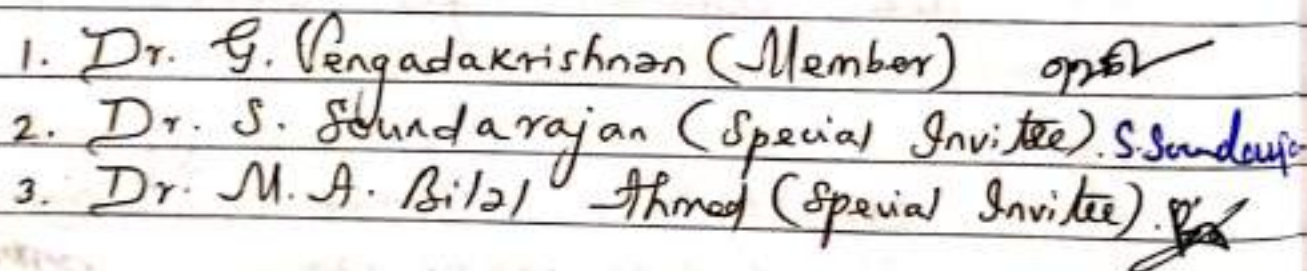 1. Dr. G. Vengadakrishnan (Member)
2. Dr. S. Soundarajan (Special Invitee). S. Soundaraja
3. Dr. M. A. Bilal Ahmed (Special Invitee).